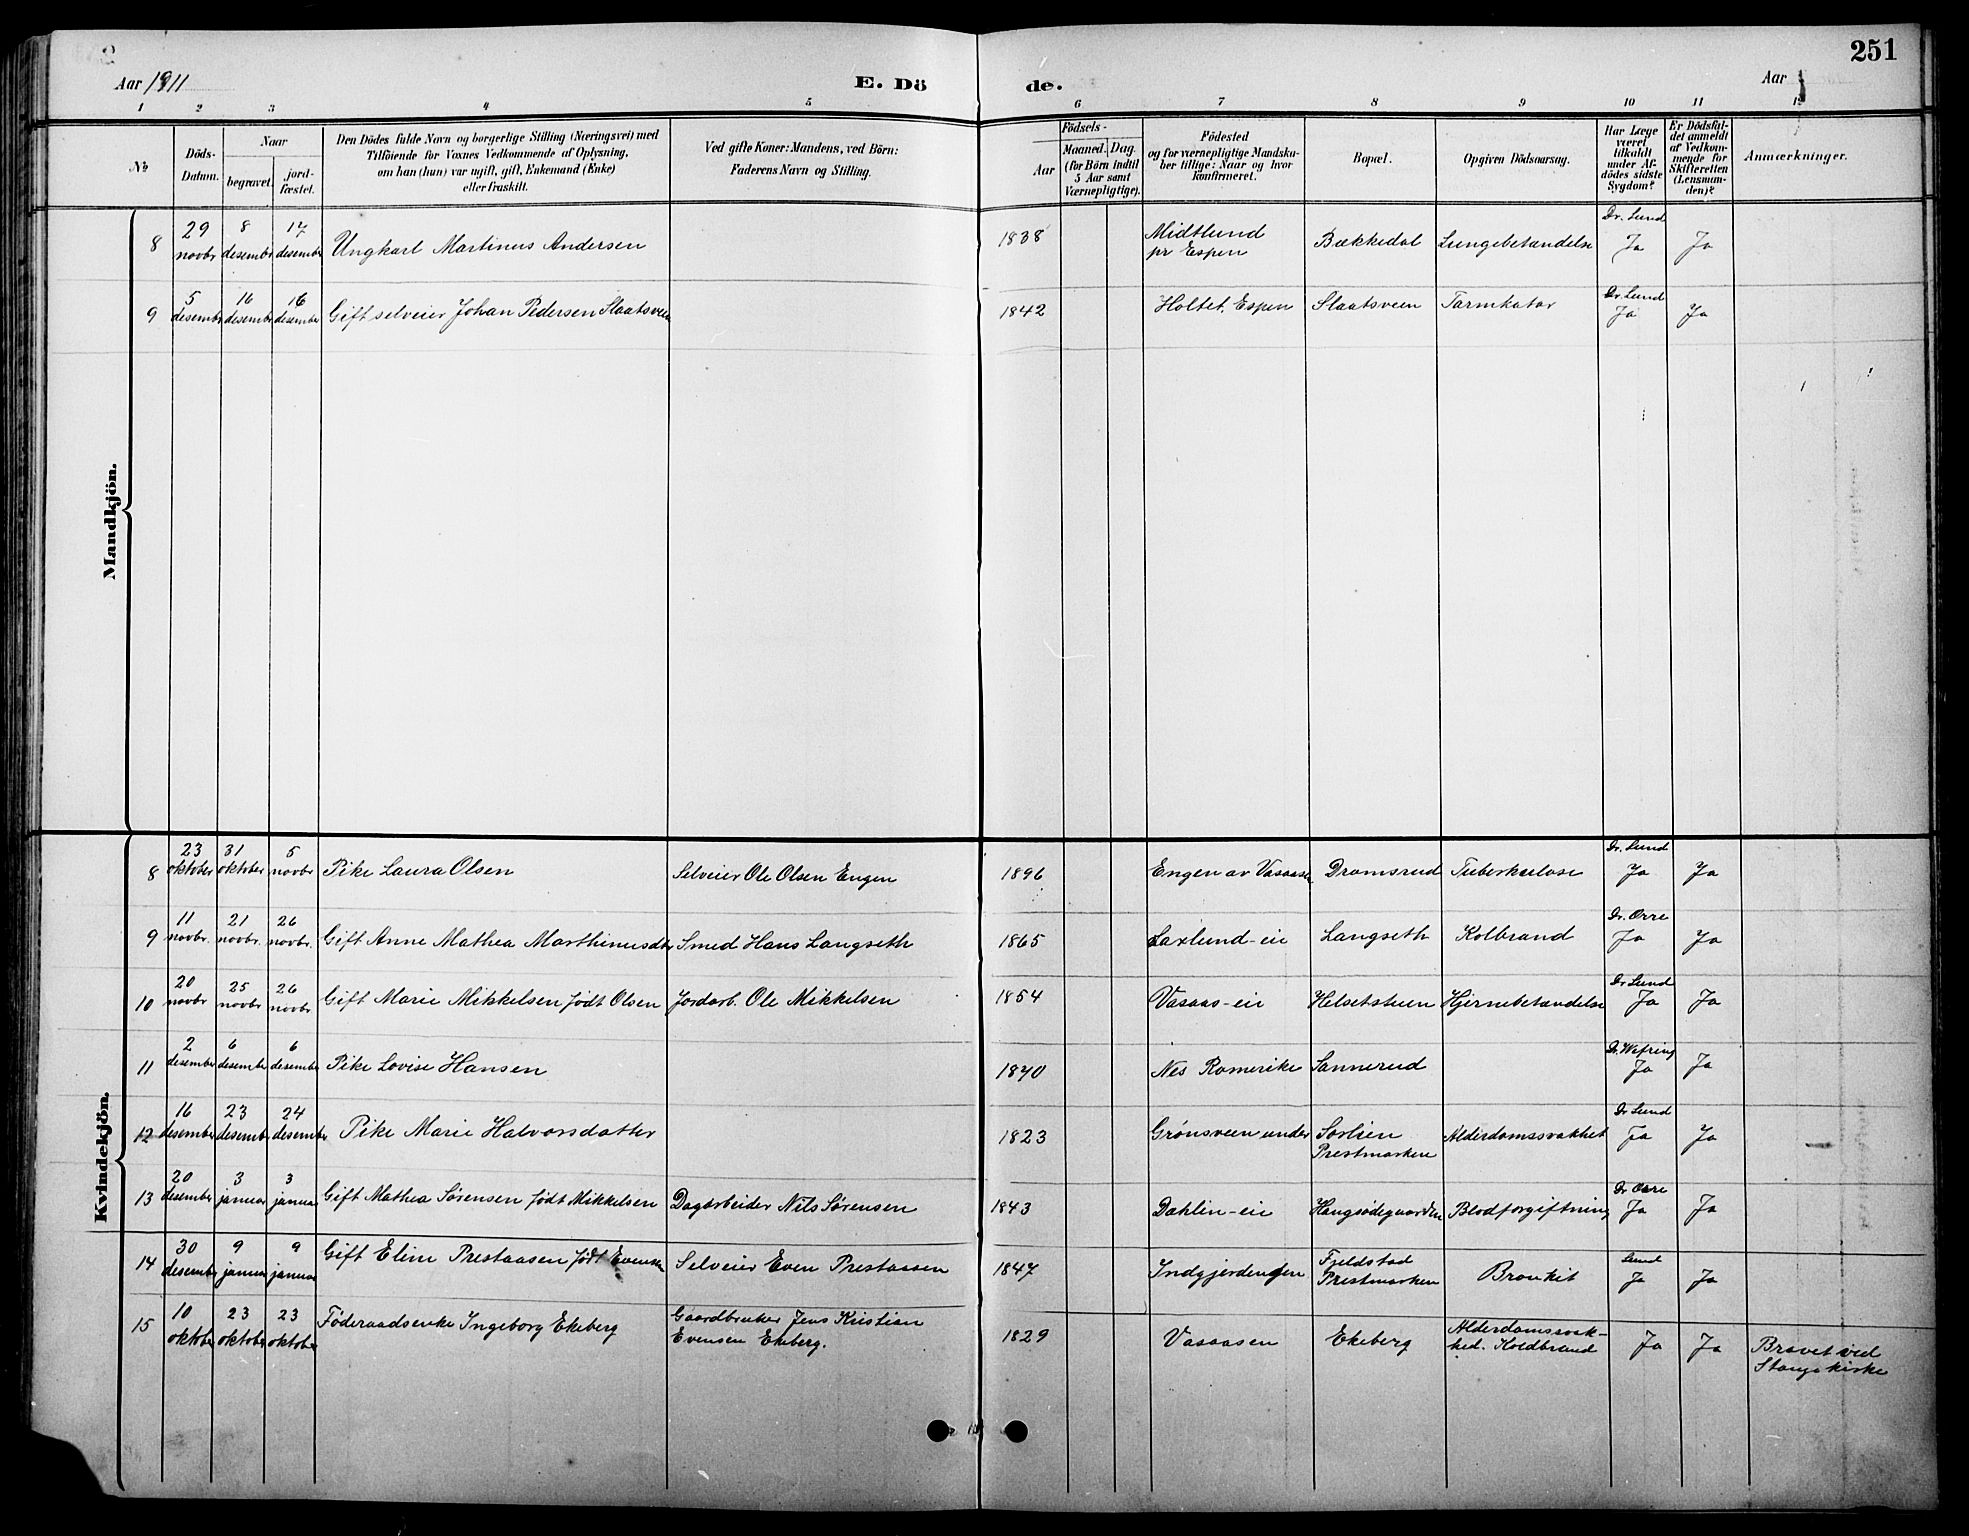 251
Aar 1911
E. Dö de.
Aar
1 2 3 4 5 6 7 8 9 10 11 12
№
Döds-Datum.
Naar
begravet.
jord-fæstet.
Den Dödes fulde Navn og borgerlige Stilling (Næringsvei) med
Tilföiende for Voxnes Vedkommende af Oplysning,
om han (hun) var ugift, gift, Enkemand (Enke)
eller fraskilt.
Ved gifte Koner: Mandens, ved Börn:
Faderens Navn og Stilling.
Födsels-
Aar
Maaned. Dag.
(for Börn indtil
5 Aar samt
Værnepligtige).
Födested
og for værnepligtige Mandska-
ber tillige: Naar og hvor
konfirmeret.
Bopæl.
Opgiven Dödsaarsag.
Har Læge
været
tilkaldt
under Af-
dödes sidste
Sygdom?
Er Dödsfal-
det anmeldt
af Vedkom-
mende for
Skifteretten
(Lensman-
den)?
Anmærkninger.
Mandkjön.
8 29 novbr 8 desembr 17 desember Ungkarl Martinus Andersen 1838 Midtlund pr Espen Bækkedal Lungebetændelse Dr. Lund Ja Ja
9 5 desember 16 desember 16 desember Gift selveier Johan Pedersen Slaatsveen 1842 Holtet, Espen Slaatsveen Tarmkatar Dr. Lund Ja Ja
Kvindekjön.
8 23 oktober 31 oktober 5 novbr Pike Laura Olsen Selveier Ole Olsen Engen 1896 Engen av Vasaasen Dramsrud Tuberkulose Dr. Lund Ja Ja
9 11 novbr. 21 novbr. 26 novbr. Gift Anne Mathea Marthinusdtr Smed Hans Langseth 1865 Laxlund-eie Langseth Kolbrand Dr. Orre Ja Ja
10 20 novbr 25 novbr 26 novbr Gift Marie Mikkelsen født Olsen Jordarb. Ole Mikkelsen 1854 Vasaas-eie Helsetstuen Hjernebetændelse Dr Lund Ja Ja
11 2 desember 6 desember 6 desember Pike Lovise Hansen 1840 Nes Romerike Sannerud Dr. Wefring Ja Ja
12 16 desember 23 desember 24 desember Pike Marie Halvorsdatter 1823 Grønsveen under Sorlien Prestmarken Alderdomssvakhet Dr Lund Ja Ja
13 20 desember 3 januar 3 januar Gift Mathea Sørensen født Mikkelsen Dagarbeider Nils Sørensen 1843 Dahlin-eie Haugsødegaarden Blodforgiftning Dr Orre Ja Ja
14 30 desember 9 januar 9 januar Gift Eline Prestaasen født Evensen Selveier Even Prestaasen 1847 Indgjerdingen Fjeldstad Prestmarken Bronkit Lund Ja Ja
15 10 oktober 23 oktober 23 oktober Føderaadsenke Ingeborg Ekeberg Gaardbruker Jens Kristian Evensen Ekeberg. 1829 Vasaasen Ekeberg Alderdomssvak-hed. Koldbrand Ja Ja Bravet ved Stange kirke